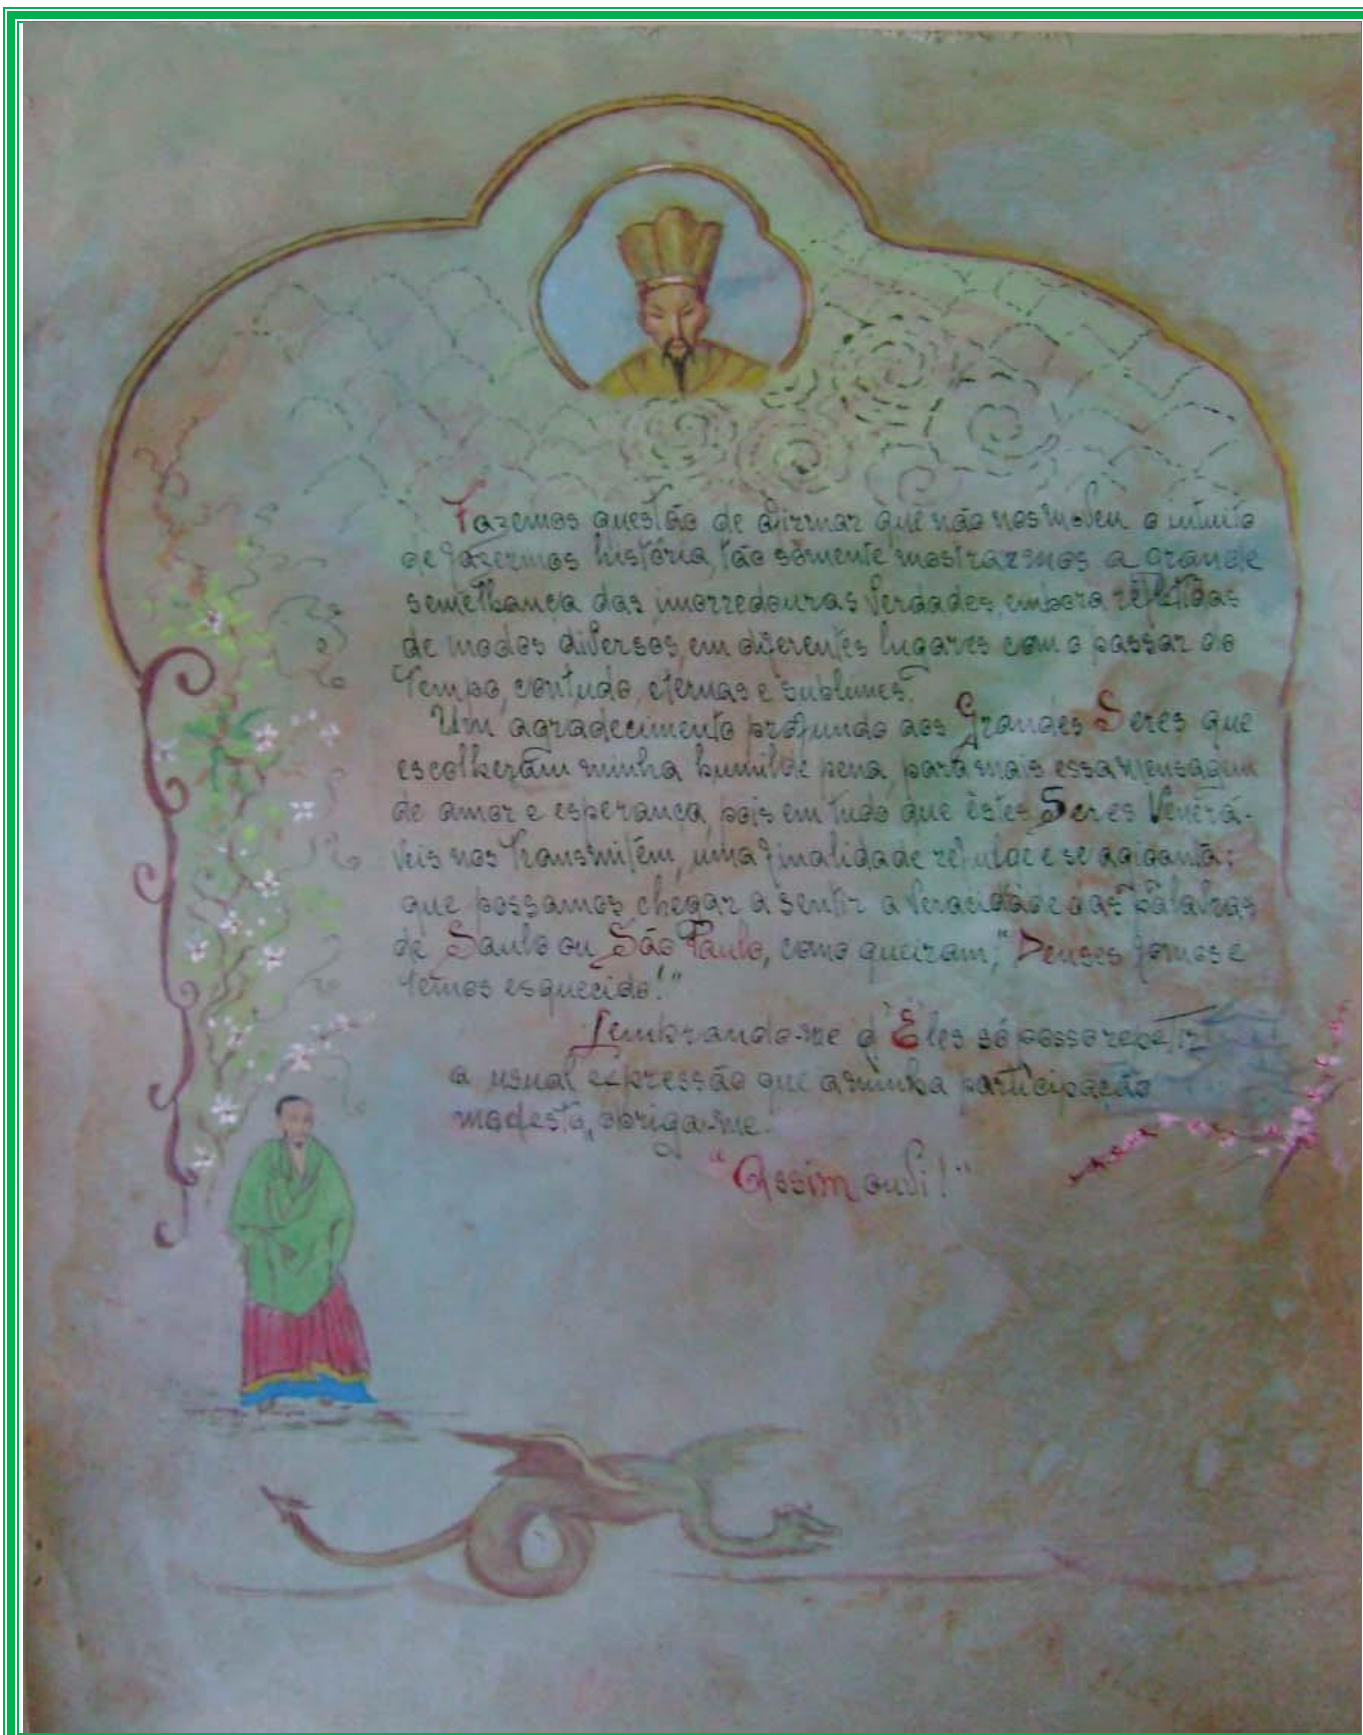 Fazemos questão de afirmar que não nos moveu o intuito
de fazermos história, tão sòmente mostrarmos a grande
semelhança das imorredouras Verdades, embora repetidas
de modos diversos, em diferentes lugares com o passar do
Tempo, contudo, eternas e sublimes.
Um agradecimento profundo aos Grandes Seres que
escolheram minha humilde pena, para mais essa Mensagem
de amor e esperança, pois em tudo que êstes Seres Venerá-
veis nos transmitem, uma finalidade refulge e se agiganta:
que possamos chegar a sentir a Veracidade das palavras
de Saulo ou São Paulo, como queiram; "Deuses fomos e
temos esquecido!"
Lembrando-me d'Êles só posso repetir
a usual expressão que a minha participação
modesta, obriga-me.
"Assim ouvi!"